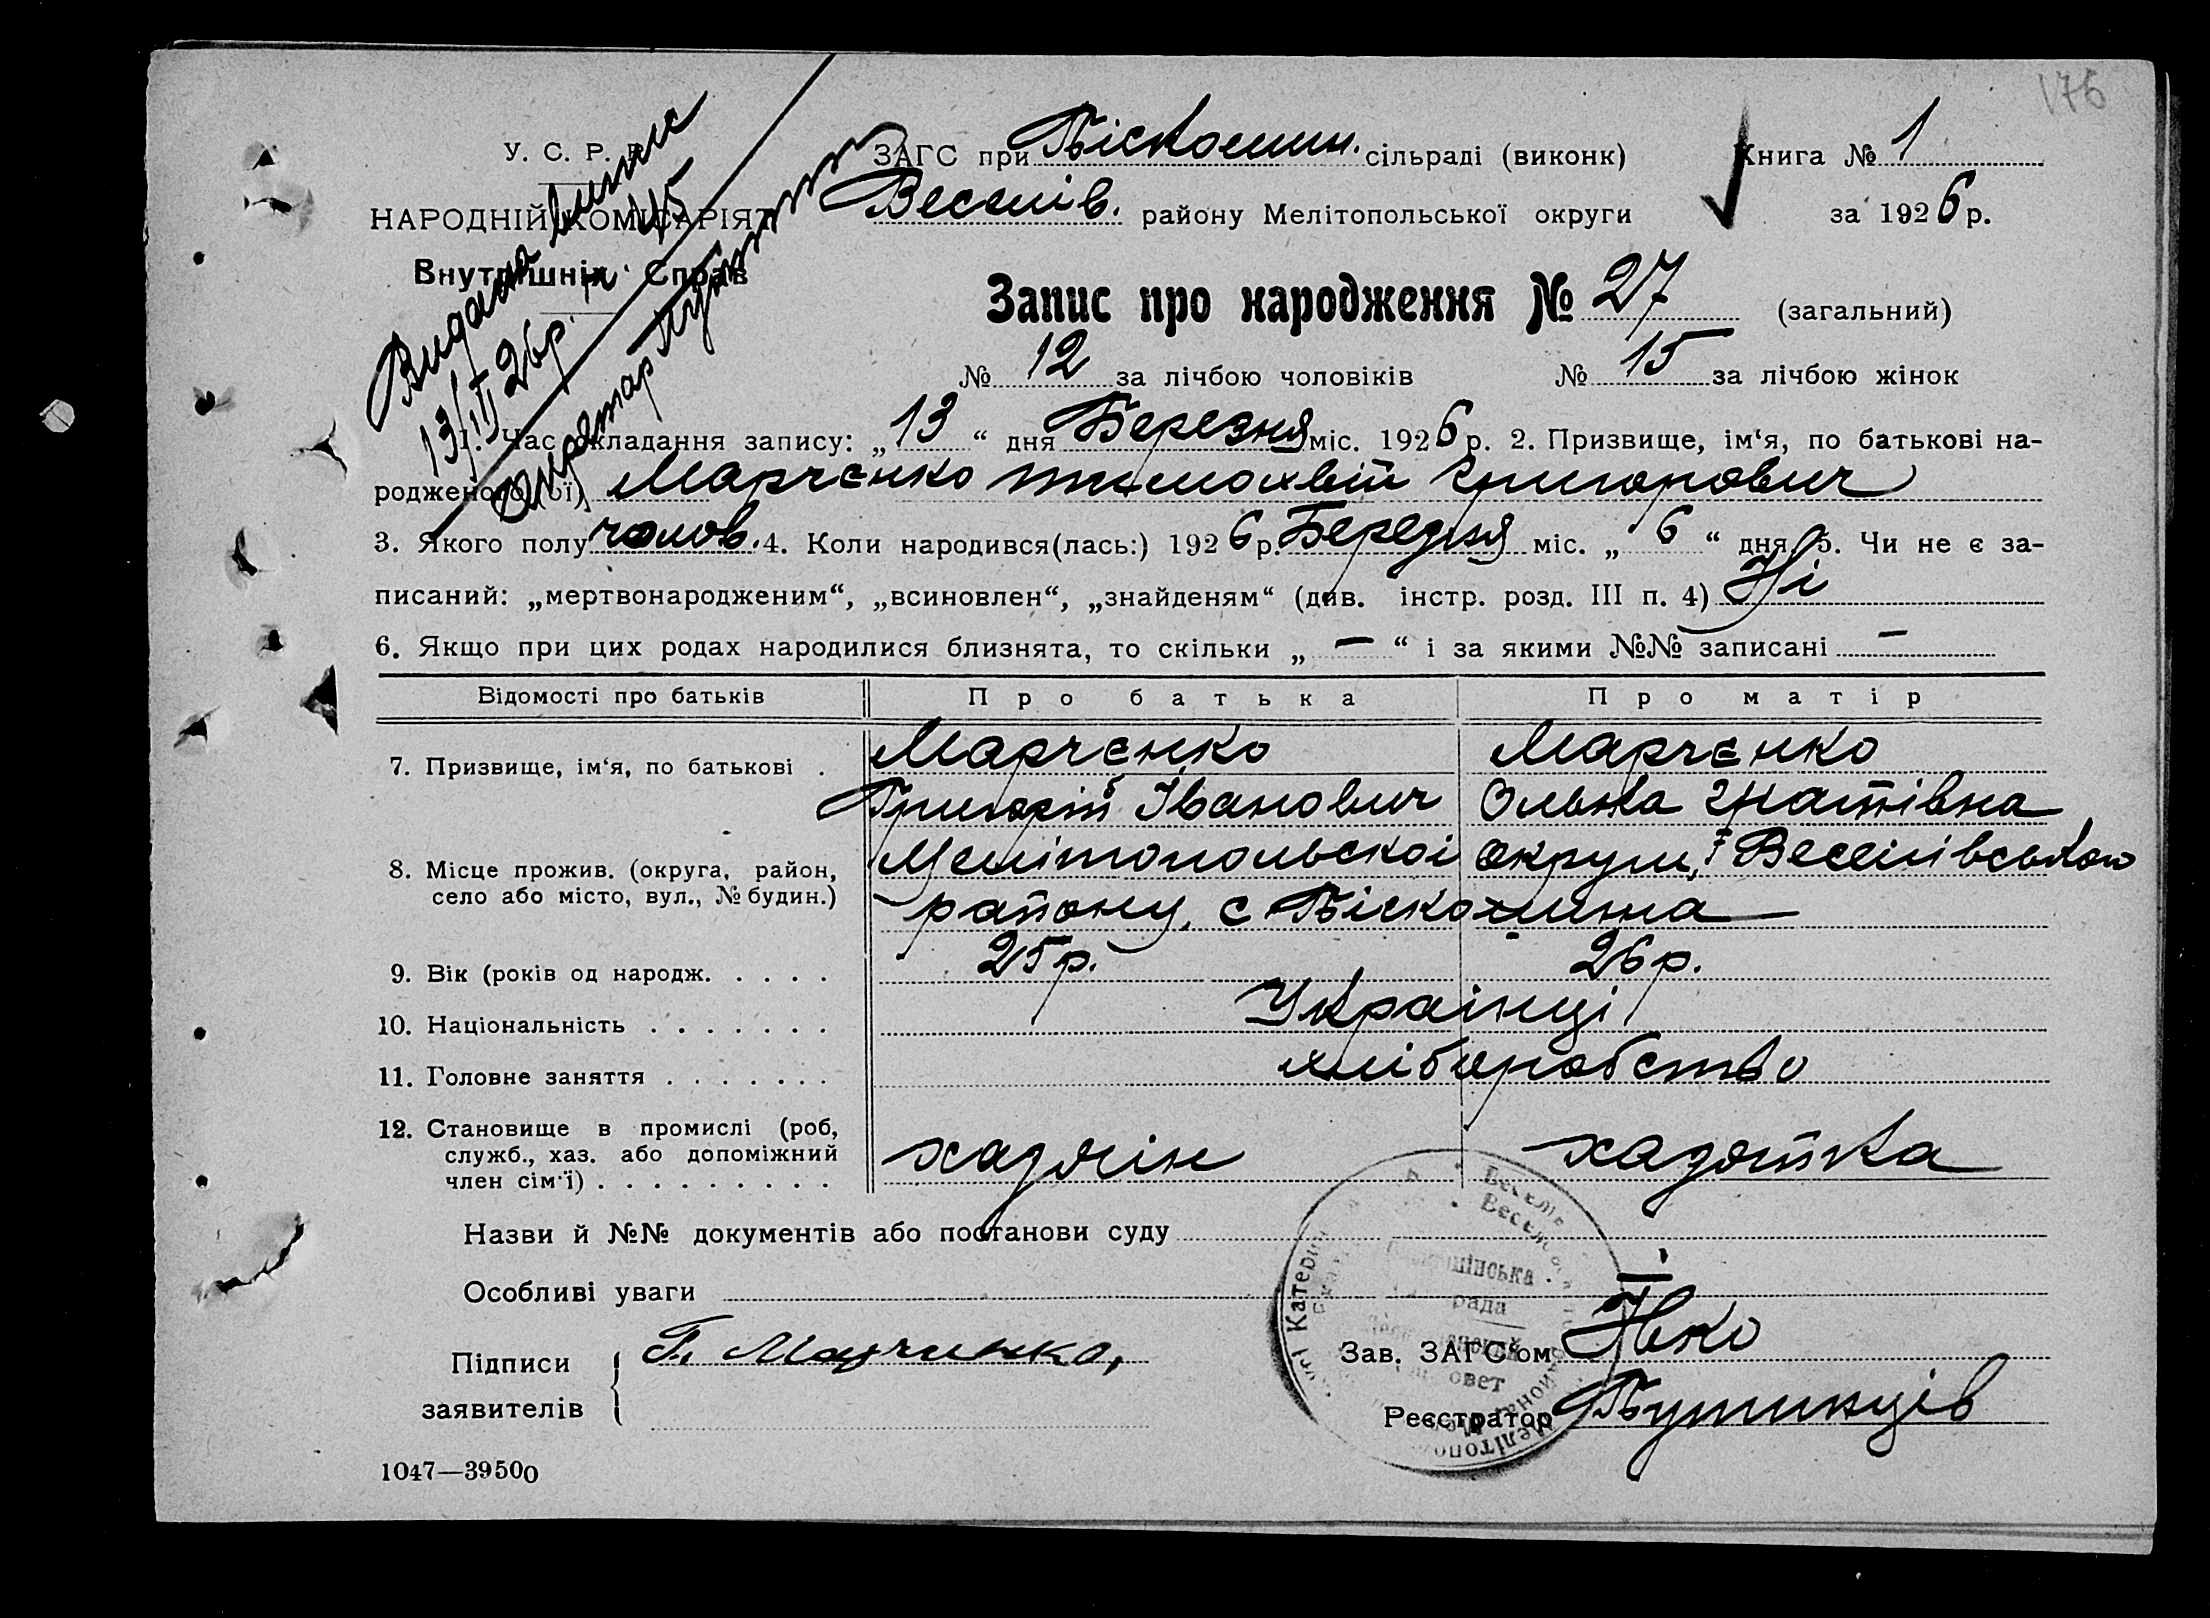 176
У. С. Р. Р.
НАРОДНІЙ КОМІСАРІЯТ
Внутрішніх Справ
Видана випис
13/III 26р. № 45
Секретар
ЗАГС при Піскошин. сільраді (виконк) Книга № 1
Веселів. району Мелітопольської округи за 1926 р.
Запис про народження № 27 (загальний)
№ 12 за лічбою чоловіків № 15 за лічбою жінок
1. Час складання запису: „13“ дня Березня міс. 1926 р. 2. Призвище, ім‘я, по батькові на-
родженого (ої) Марченко Тимохвій Григорович
3. Якого полу чолов. 4. Коли народився(лась:) 1926 р. Березня міс. „6“ дня. 5. Чи не є за-
писаний: „мертвонародженим“, „всиновлен“, „знайденям“ (див. інстр. розд. III п. 4) Ні
6. Якщо при цих родах народилися близнята, то скільки „ — “ і за якими №№ записані —
Відомості про батьків Про батька Про матір
7. Призвище, ім‘я, по батькові . Марченко Марченко
Григорій Іванович Ольга Гнатівна
8. Місце прожив. (округа, район, Мелітопольскоі округи, Веселівського
село або місто, вул., № будин.) району, с Піскошина
9. Вік (років од народж. . . . . 25 р. 26 р.
10. Національність . . . . . . . Українці
11. Головне заняття . . . . . . . хліборобство
12. Становище в промислі (роб,
служб., хаз. або допоміжний хазяін хазяйка
член сім‘ї) . . . . . . . . .
Назви й №№ документів або постанови суду
Особливі уваги
Підписи заявителів Г. Марченко,
Зав. ЗАГС‘ом
Реєстратор
рада
1047—39500